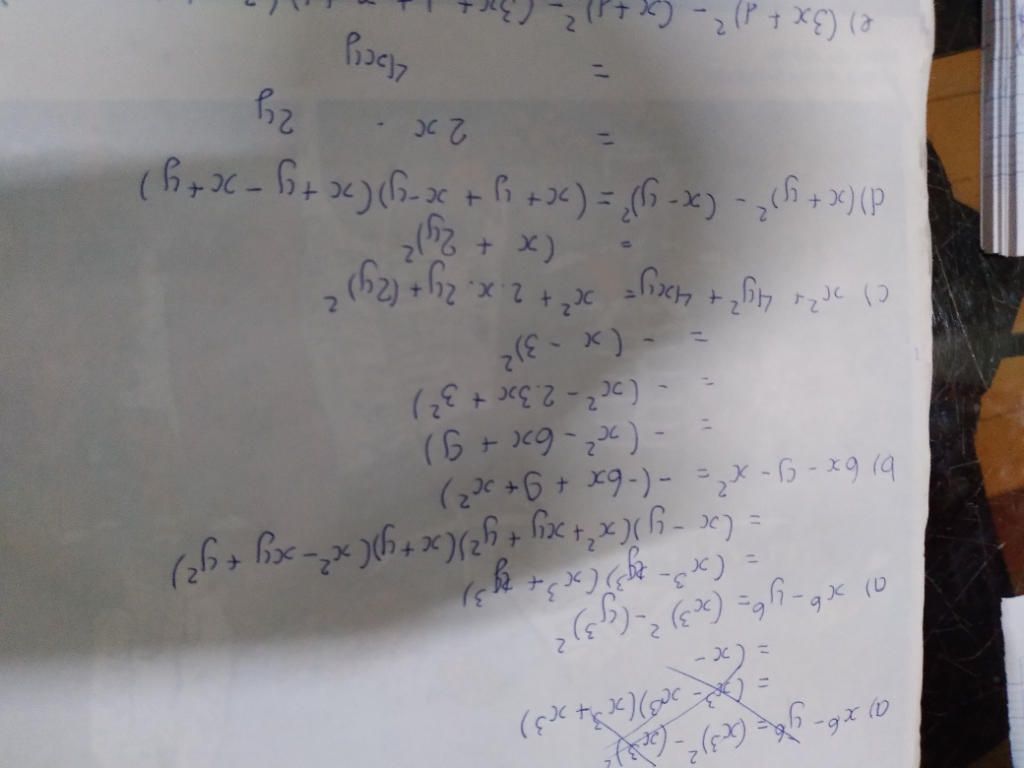 a) x⁶ - y⁶ = (x³)² - (x³)²
= (x³ - x³)(x³ + x³)
= (x -
a) x⁶ - y⁶ = (x³)² - (y³)²
= (x³ - y³)(x³ + y³)
= (x - y)(x² + xy + y²)(x + y)(x² - xy + y²)
b) 6x - 9 - x² = - (-6x + 9 + x²)
= - (x² - 6x + 9)
= - (x² - 2.3x + 3²)
= - (x - 3)²
c) x² + 4y² + 4xy = x² + 2.x.2y + (2y)²
= (x + 2y)²
d) (x + y)² - (x - y)² = (x + y + x - y)(x + y - x + y)
= 2x . 2y
= 4xy
e) (3x + 1)² - (x + 1)² = (3x + 1 + x + 1)(